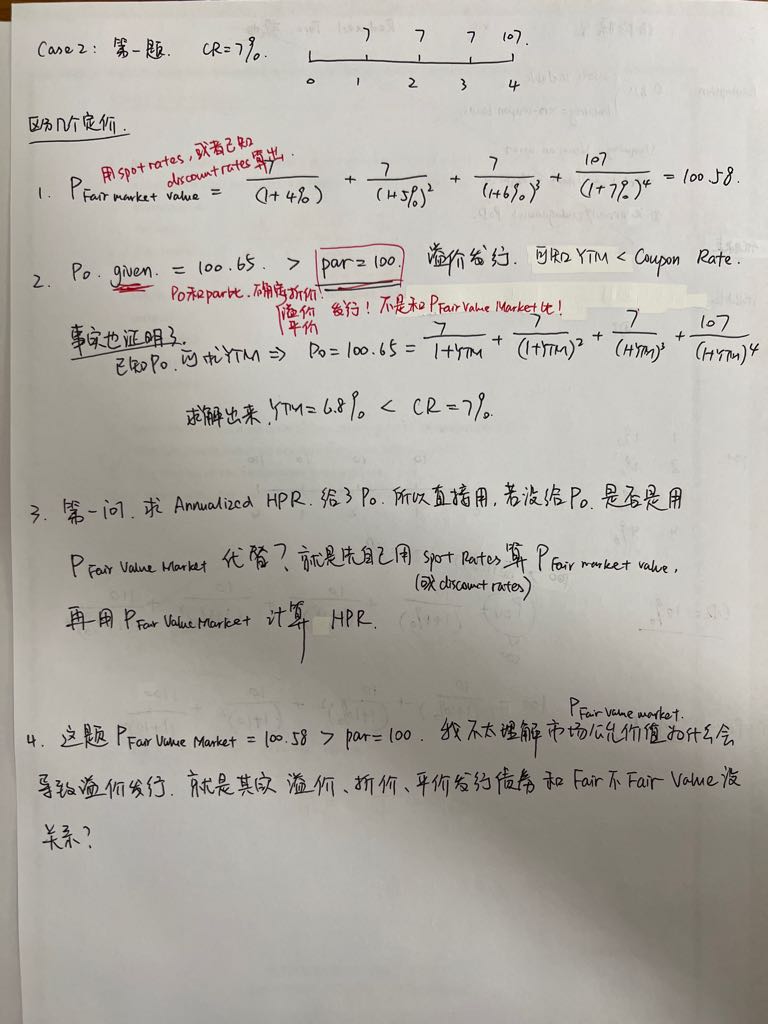 Case 2: 第一题. CR=7%.
7 7 7 107.
0 1 2 3 4
区分几个定价.
用spot rates, 或者已知
discount rates算出.
1. P Fair market value = 7/(1+4%) + 7/(1+5%)² + 7/(1+6%)³ + 107/(1+7%)⁴ = 100.58.
2. P0. given. = 100.65. > par=100. 溢价发行. 可知 YTM < Coupon Rate.
P0和par比. 不确定折价.
溢价
平价
发行! 不是和P Fair Value Market比!
事实也证明了.
已知P0. 可求YTM ⇒ P0=100.65 = 7/1+YTM + 7/(1+YTM)² + 7/(1+YTM)³ + 107/(1+YTM)⁴
求解出来. YTM=6.8% < CR=7%.
3. 第一问. 求 Annualized HPR. 给了P0. 所以直接用, 若没给P0. 是否是用
P Fair Value Market 代替? 就是先自己用 spot Rates 算 P Fair market value,
(或discount rates)
再用 P Fair Value Market 计算 HPR.
P Fair value market.
4. 这题 P Fair Value Market = 100.58 > par=100. 我不太理解市场公允价值为什么会
导致溢价发行. 就是其实 溢价、折价、平价发行债券 和 Fair 不 Fair Value 没
关系?